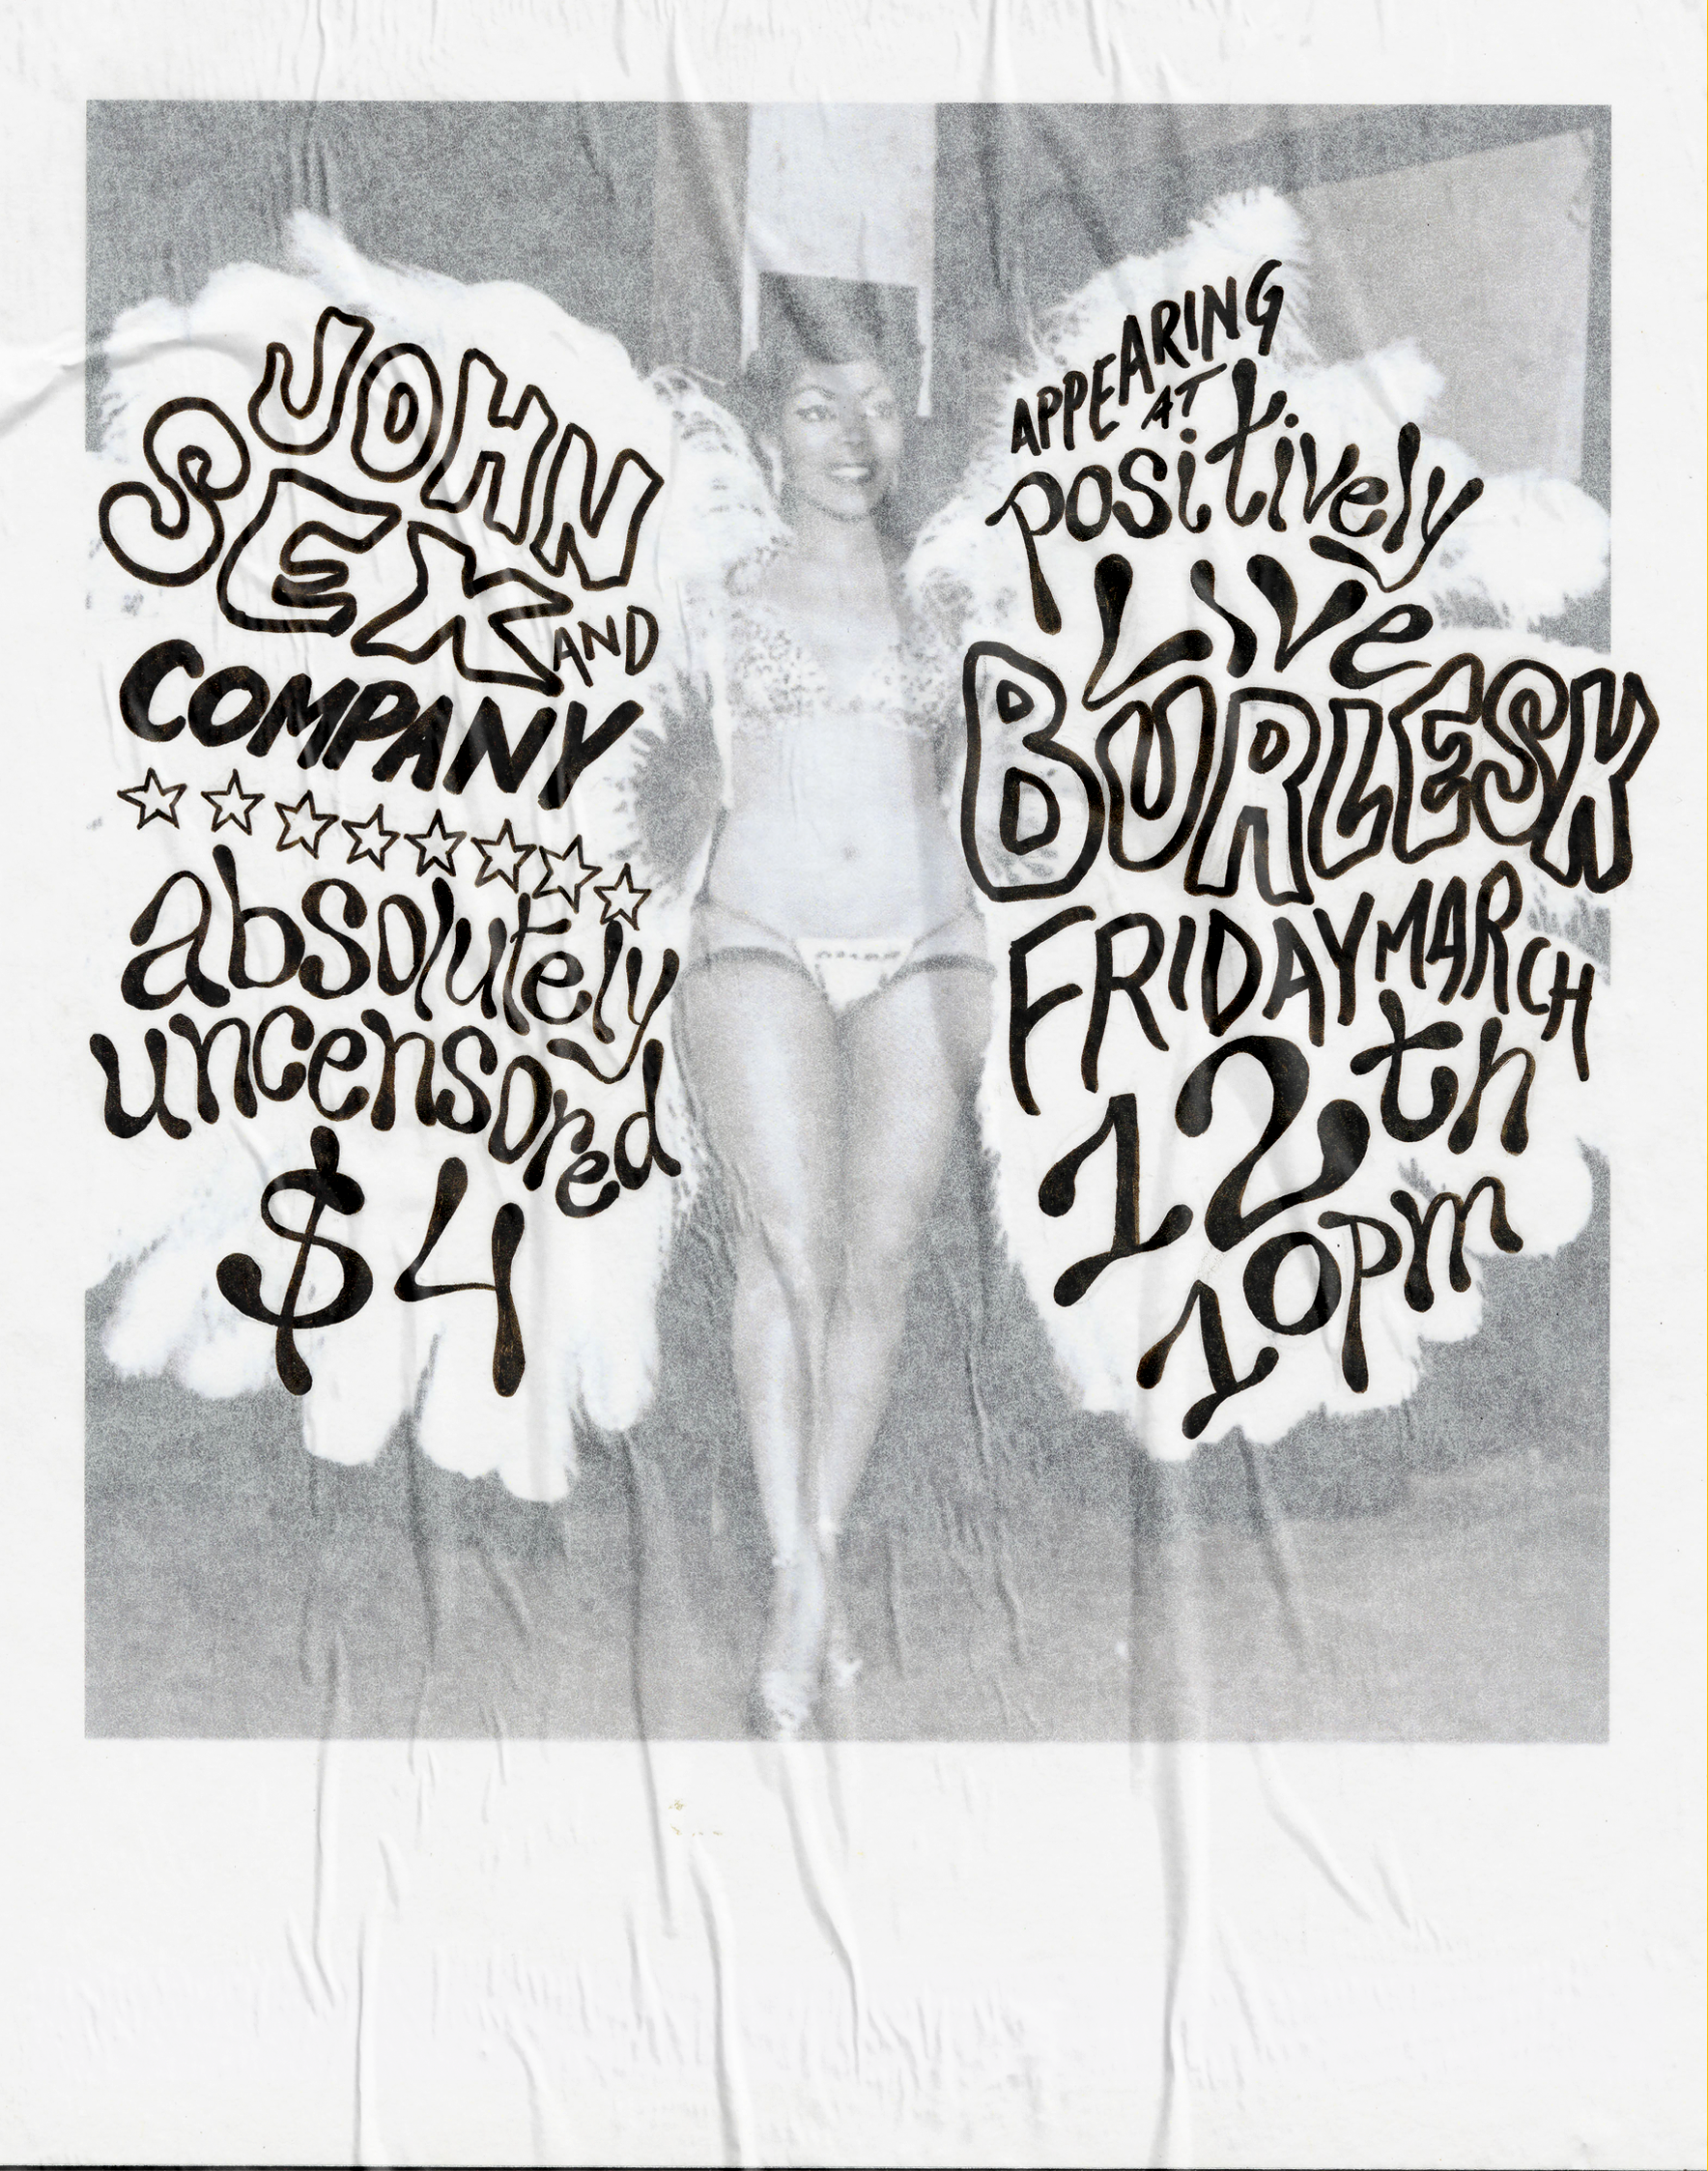 JOHN
SEX AND
COMPANY
absolutely
uncensored
$4
APPEARING
AT
positively
LIVe
BURLESK
FRIDAY MARCH
12th
10pm